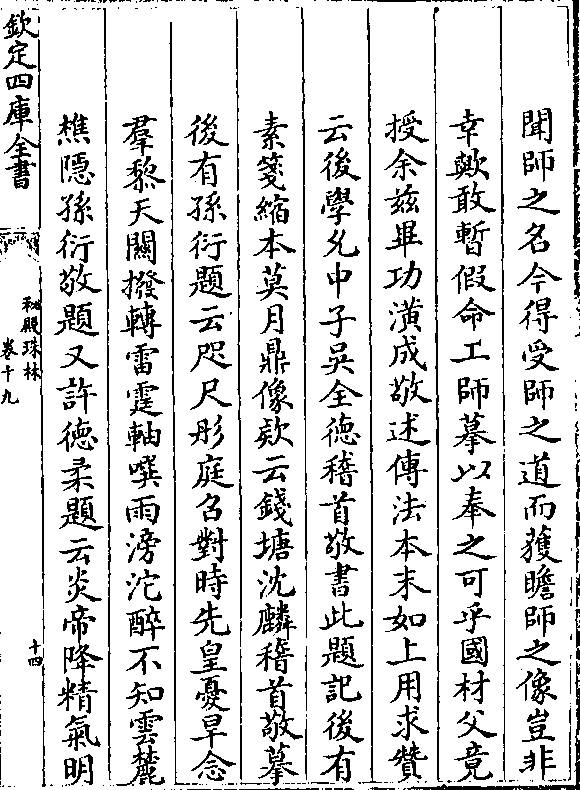 聞師之名今得受師之道而獲瞻師之像豈非
幸歟敢暫假命工師摹以奉之可乎國材父竟
授余兹畢功潢成敬述傳法本末如上用求贊
云後學允中子吳全德稽首敬書此題記後有
素箋縮本莫月鼎像欵云錢塘沈麟稽首敬摹
後有孫衍題云咫尺彤庭召對時先皇憂旱念
羣黎天關撥轉雷霆軸噀雨滂沱醉不知雲麓
樵隱孫衍敬題又許德柔題云炎帝降精氣明
欽定四庫全書
秘殿珠林
卷十九
十四